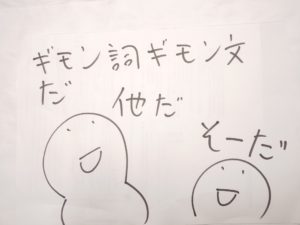 ギモン詞ギモン文
だ
他だ
そーだ